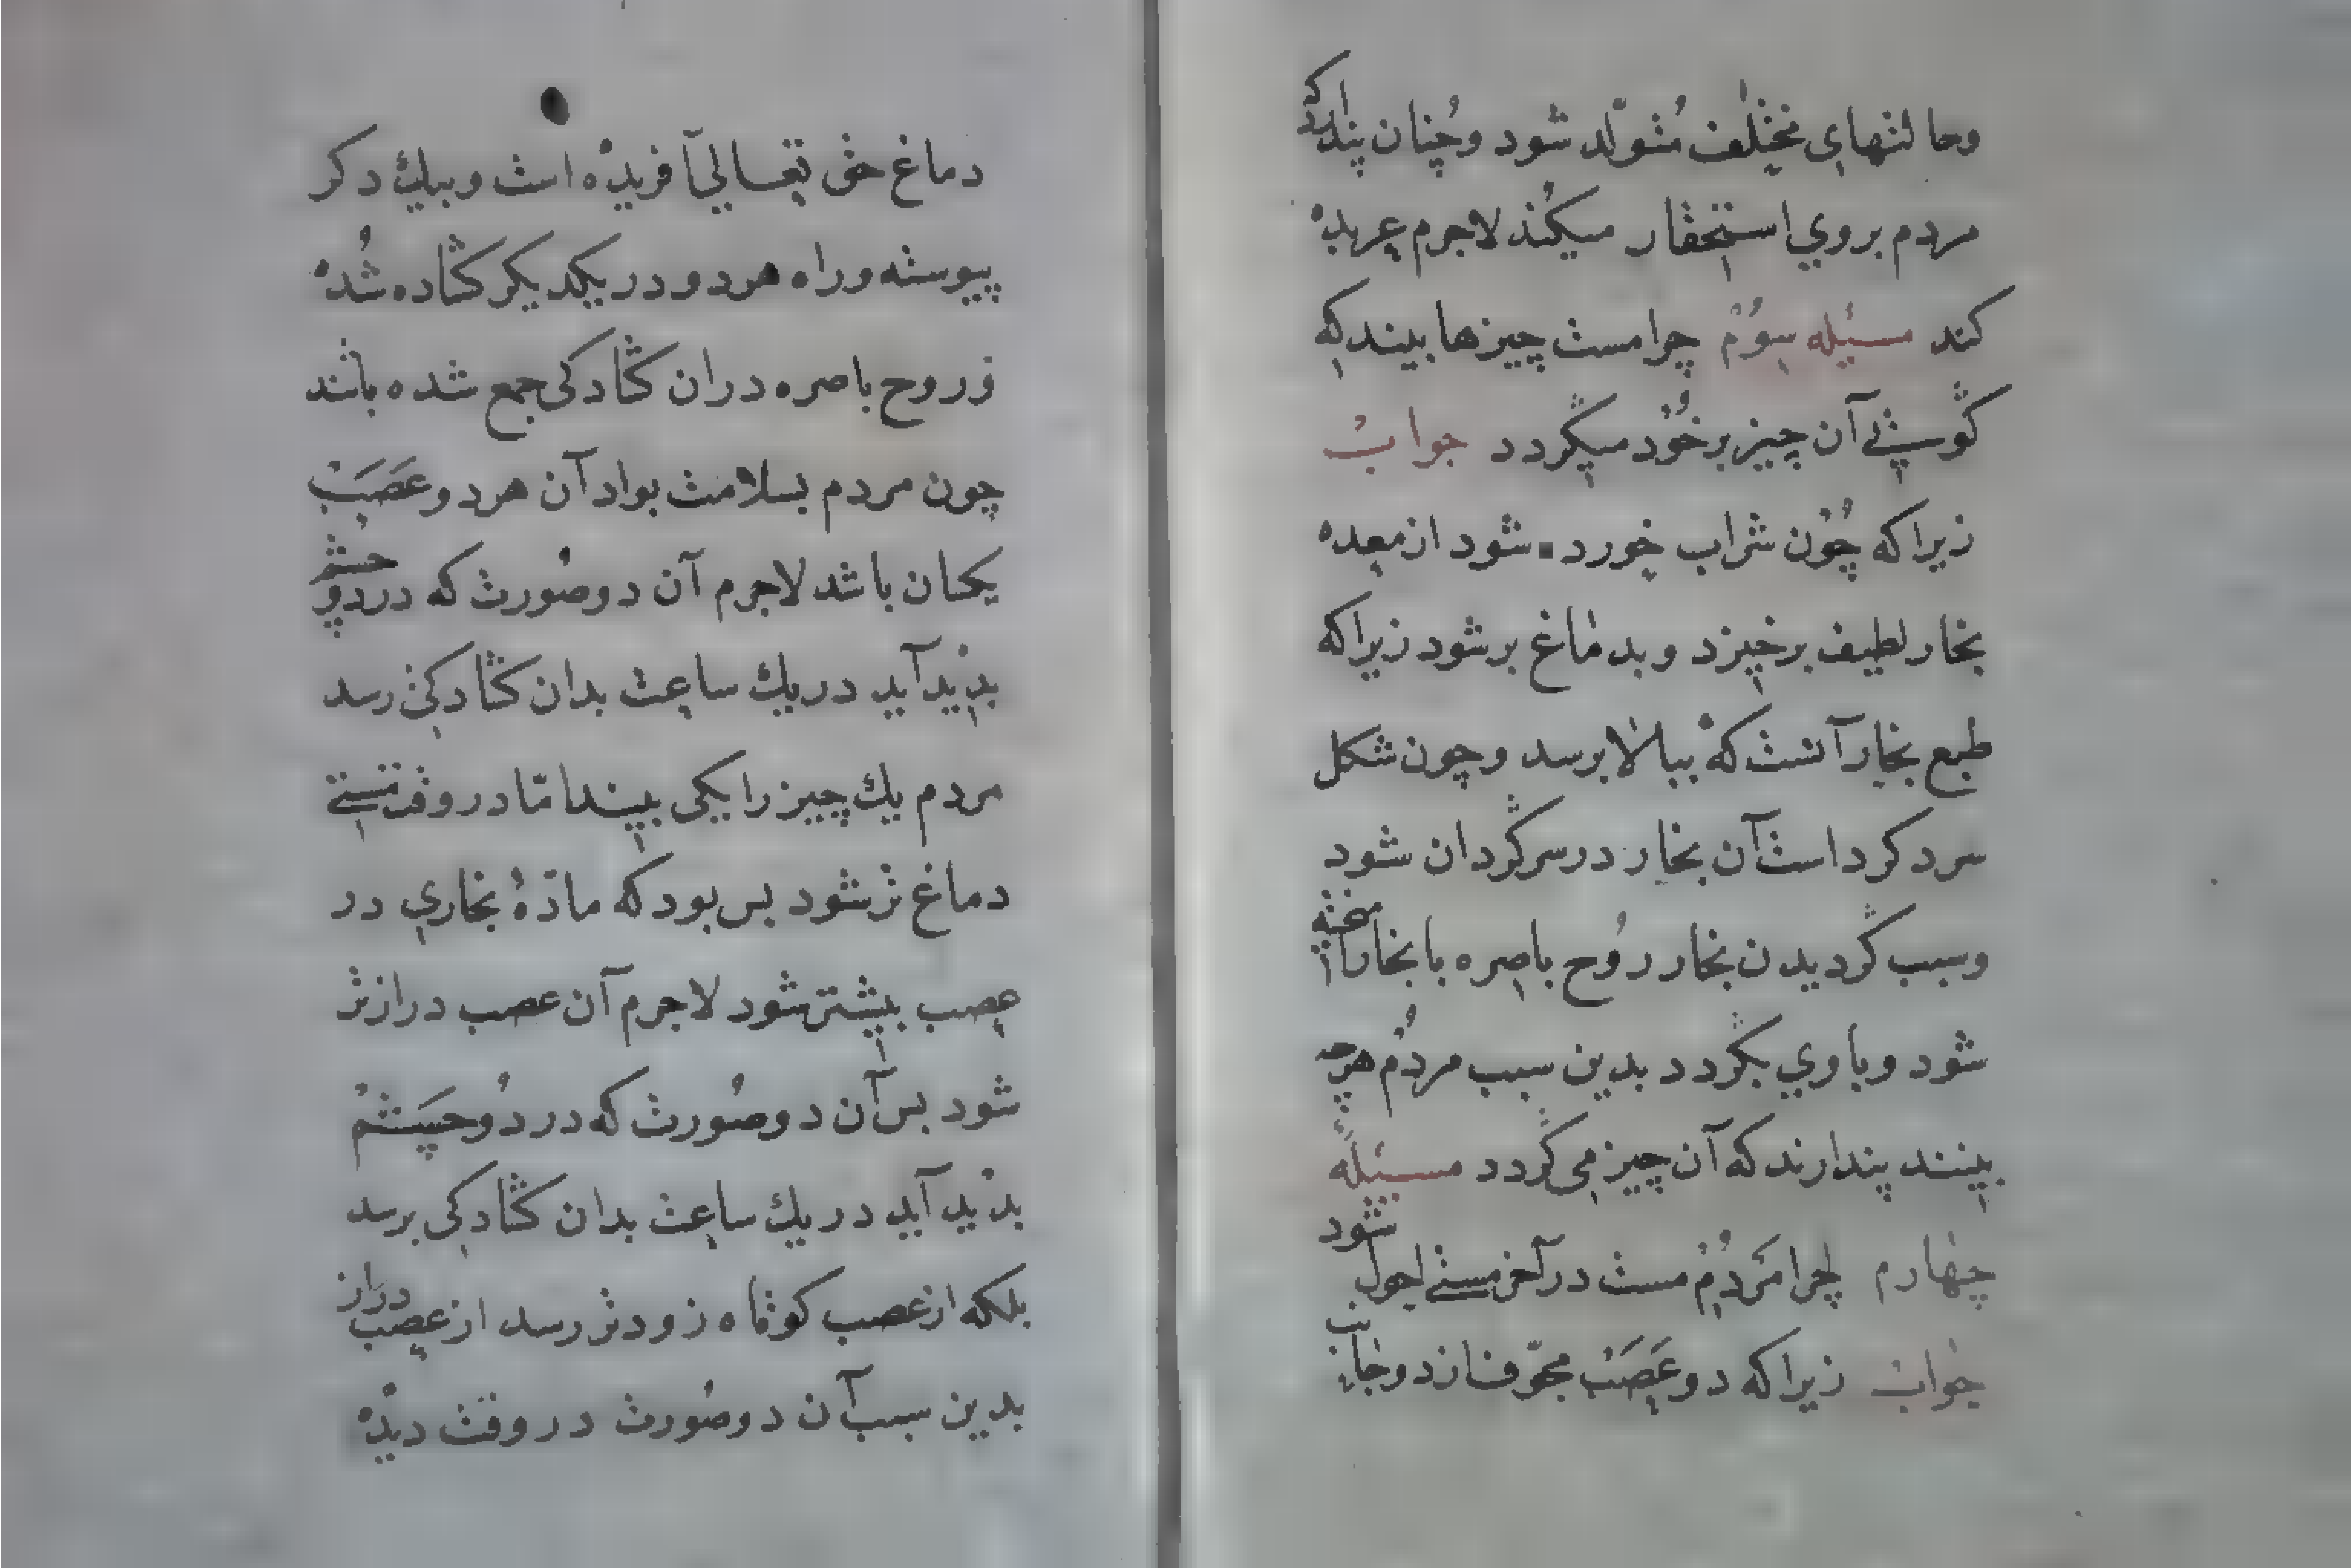 وحالتهای مختلف متولّد شود وچنان پندارد که
مردم بروي استحقار میکند لاجرم عربده
کند مسئله سوم چرا مست چیزها بیند که
گوسیئے آن چیز برخود میگردد جواب
زیرا که چون شراب خورد شود از معده
بخار لطیف برخیزد وبدماغ برشود زیرا که
طبع بخار آنست که ببالا برسد وچون شکل
سرد کرد است آن بخار در سر گردان شود
وسبب گردیدن بخار روح باصره با بخار آمیخته
شود وباوي بگردد بدین سبب مردم هرچه
بینند پندارند که آن چیز می گردد مسئله
چهارم چرا مردم مست در آخر مستے احول شود
جواب زیرا که دو عصب مجوّف از دو جانب
دماغ حق تعالي آفریده است وبیك دکر
پیوسته وراه هردو در یکدیکر کشاده شده
وروح باصره دران کشادکی جمع شده باشند
چون مردم بسلامت بواد آن هردو عصب
یکسان باشد لاجرم آن دو صورت که در دو چشم
بدید آید در یك ساعت بدان کشادکی رسد
مردم یك چیز را یکی بیند امّا در وقت مستے
دماغ تر شود بس بود که مادّهٔ بخاري در
عصب بیشتر شود لاجرم آن عصب دراز تر
شود بس آن دو صورت که در دو چشم
بدید آید در یك ساعت بدان کشادکی برسد
بلکه از عصب کوتاه زودتر رسد از عصب دراز
بدین سبب آن دو صورت در وقت دیده